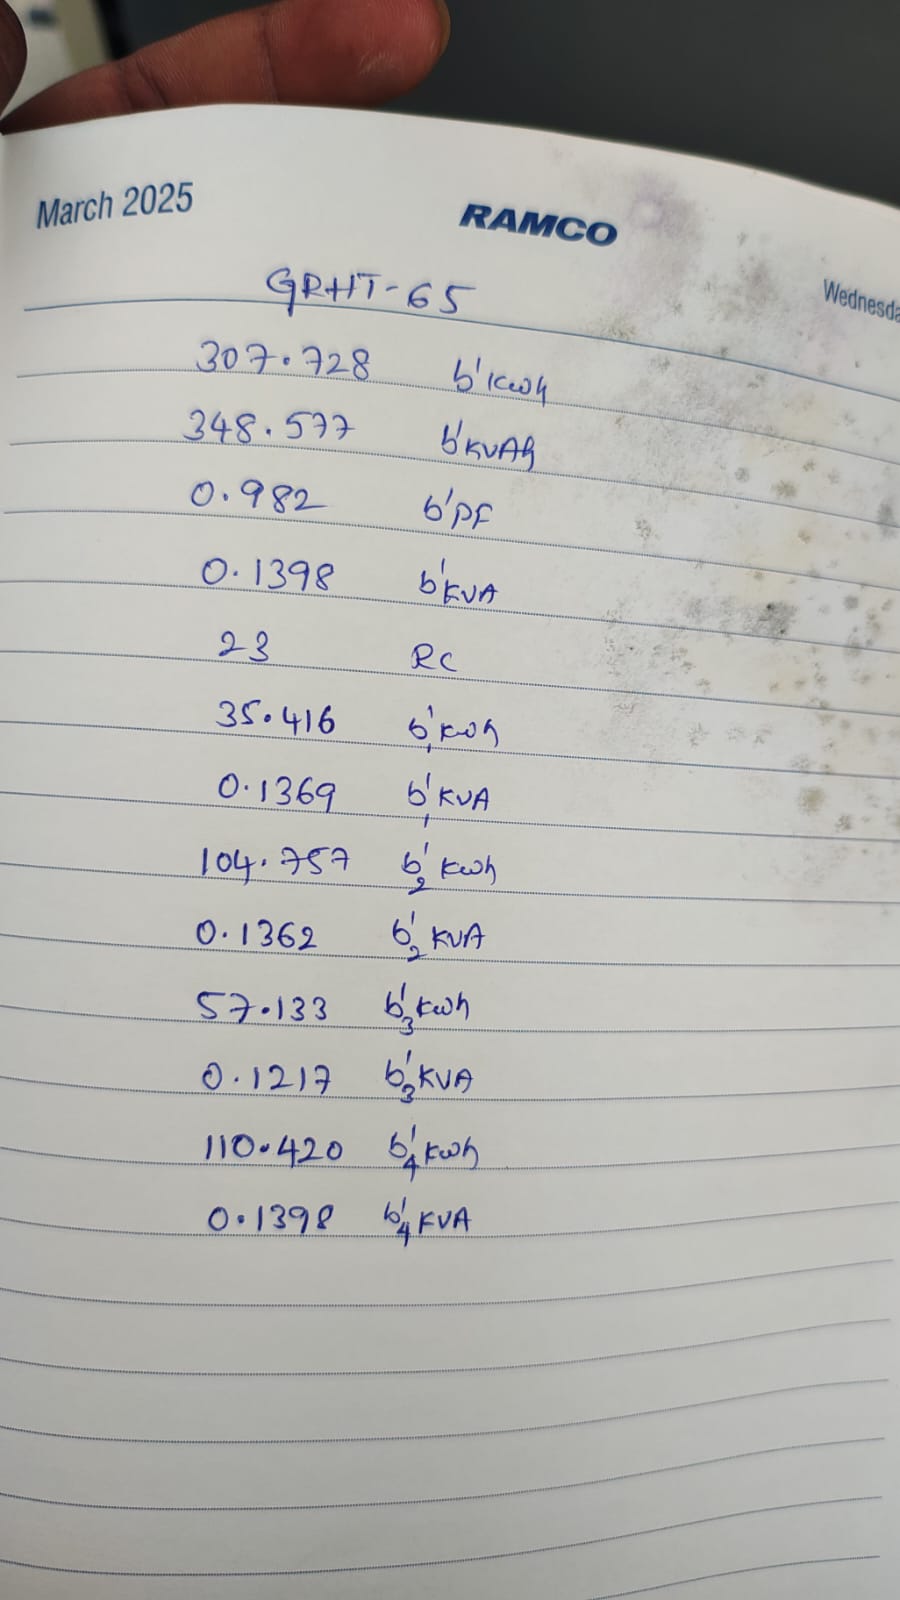 March 2025
RAMCO
Wednesda
GRHT-65
307.728 b'kwh
348.577 b'KVAh
0.982 b'PF
0.1398 b'KVA
23 RC
35.416 b'1 kwh
0.1369 b'1 KVA
104.757 b'2 kwh
0.1362 b'2 KVA
57.133 b'3 kwh
0.1217 b'3 KVA
110.420 b'4 kwh
0.1398 b'4 KVA